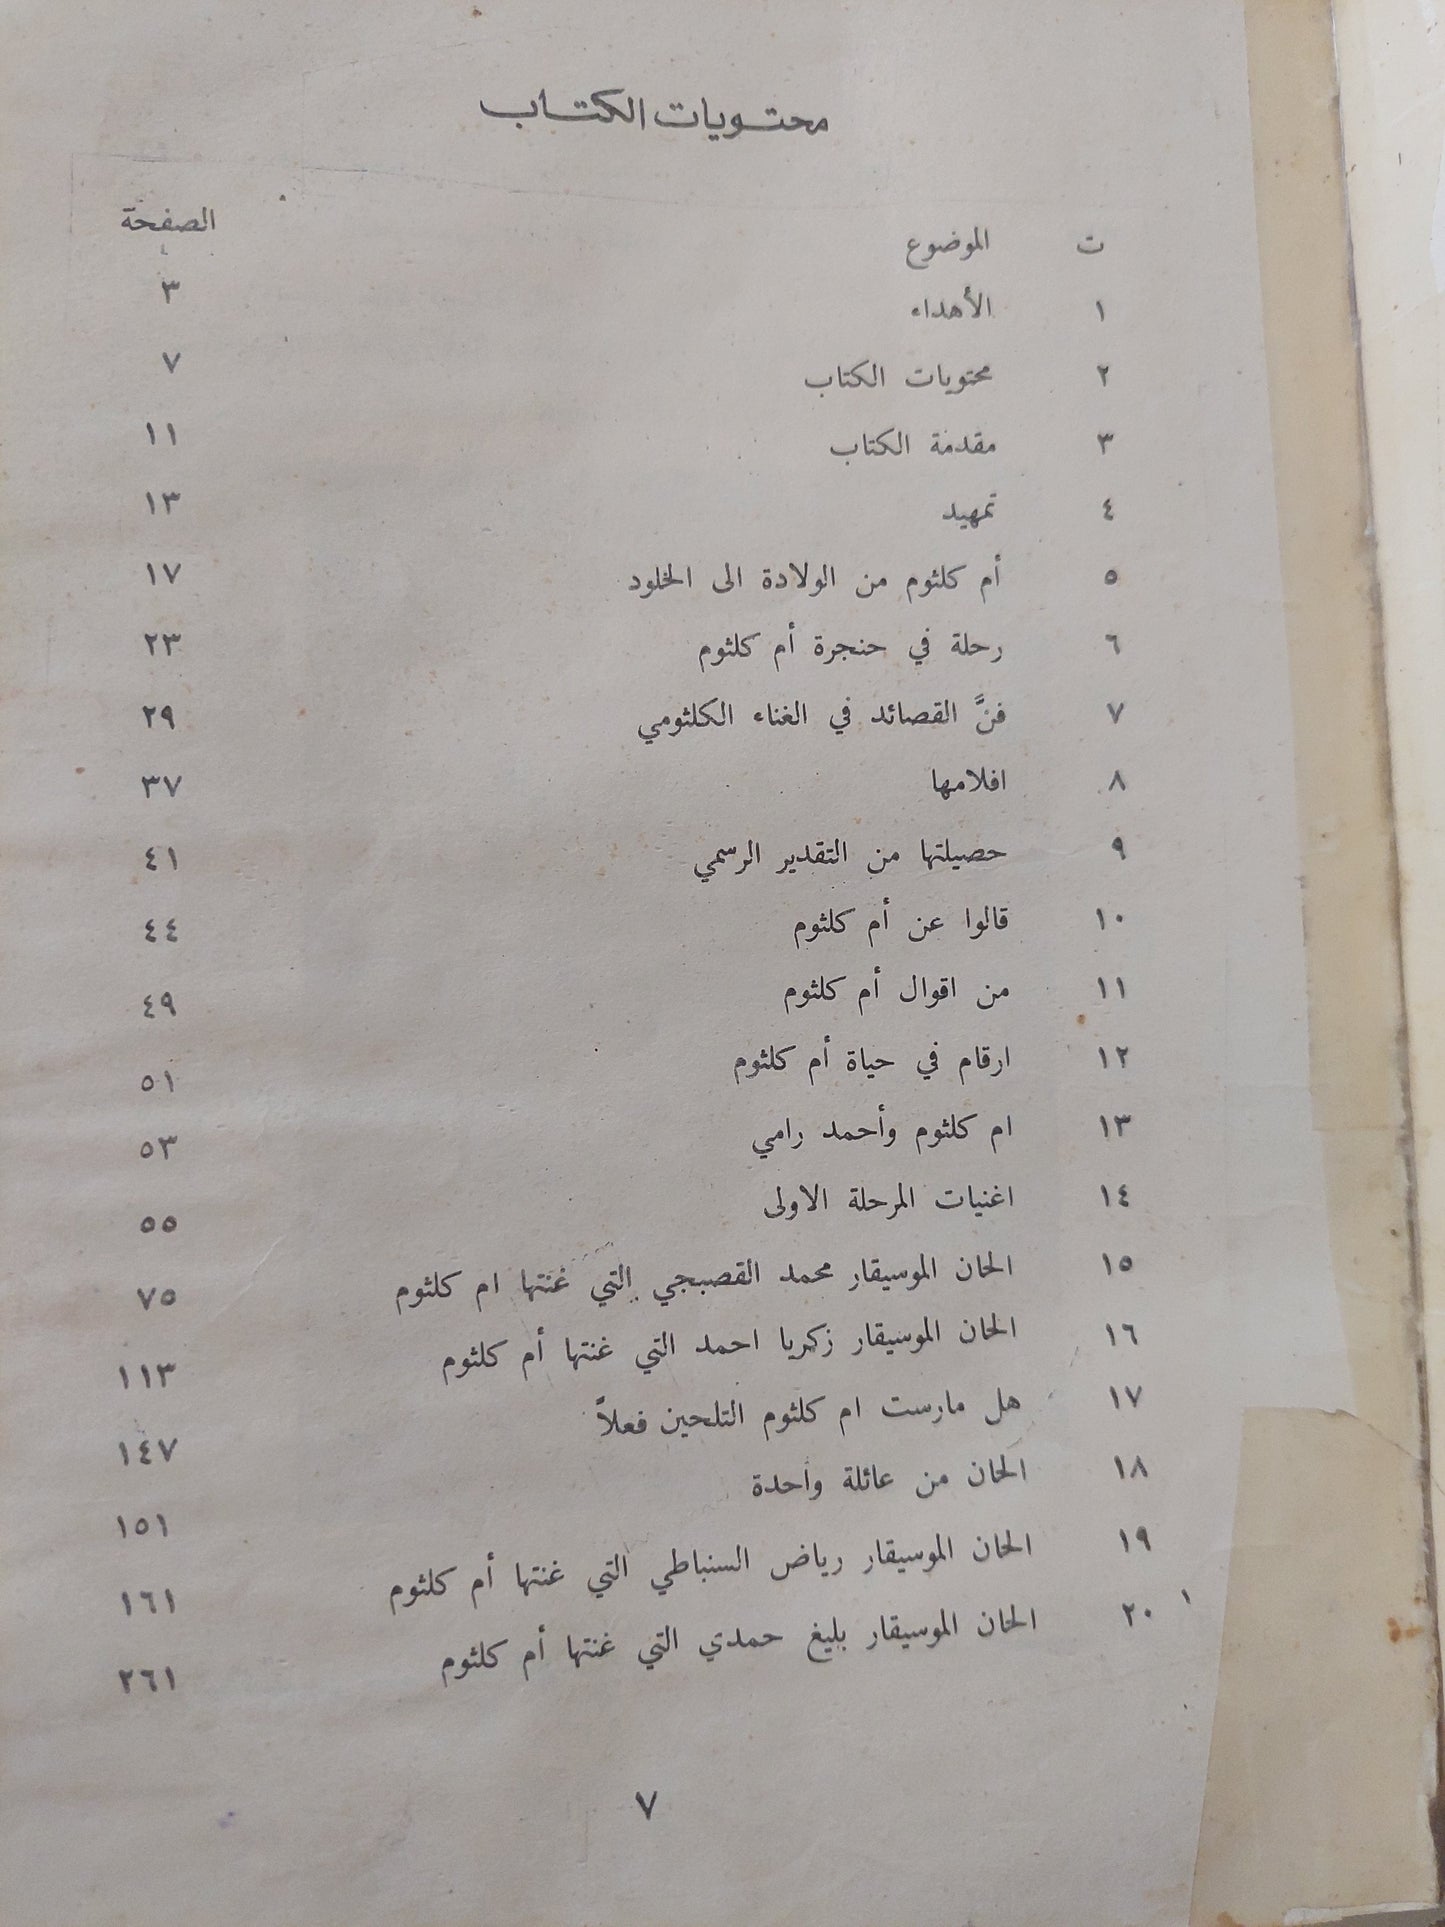 محتويات الكتاب
ت الموضوع الصفحة
١ الأهداء ٣
٢ محتويات الكتاب ٧
٣ مقدمة الكتاب ١١
٤ تمهيد ١٣
٥ أم كلثوم من الولادة الى الخلود ١٧
٦ رحلة في حنجرة أم كلثوم ٢٣
٧ فنًّ القصائد في الغناء الكلثومي ٢٩
٨ افلامها ٣٧
٩ حصيلتها من التقدير الرسمي ٤١
١٠ قالوا عن أم كلثوم ٤٤
١١ من اقوال أم كلثوم ٤٩
١٢ ارقام في حياة أم كلثوم ٥١
١٣ ام كلثوم وأحمد رامي ٥٣
١٤ اغنيات المرحلة الاولى ٥٥
١٥ الحان الموسيقار محمد القصبجي التي غنتها ام كلثوم ٧٥
١٦ الحان الموسيقار زكريا احمد التي غنتها أم كلثوم ١١٣
١٧ هل مارست ام كلثوم التلحين فعلاً ١٤٧
١٨ الحان من عائلة واحدة ١٥١
١٩ الحان الموسيقار رياض السنباطي التي غنتها أم كلثوم ١٦١
٢٠ الحان الموسيقار بليغ حمدي التي غنتها أم كلثوم ٢٦١
٧